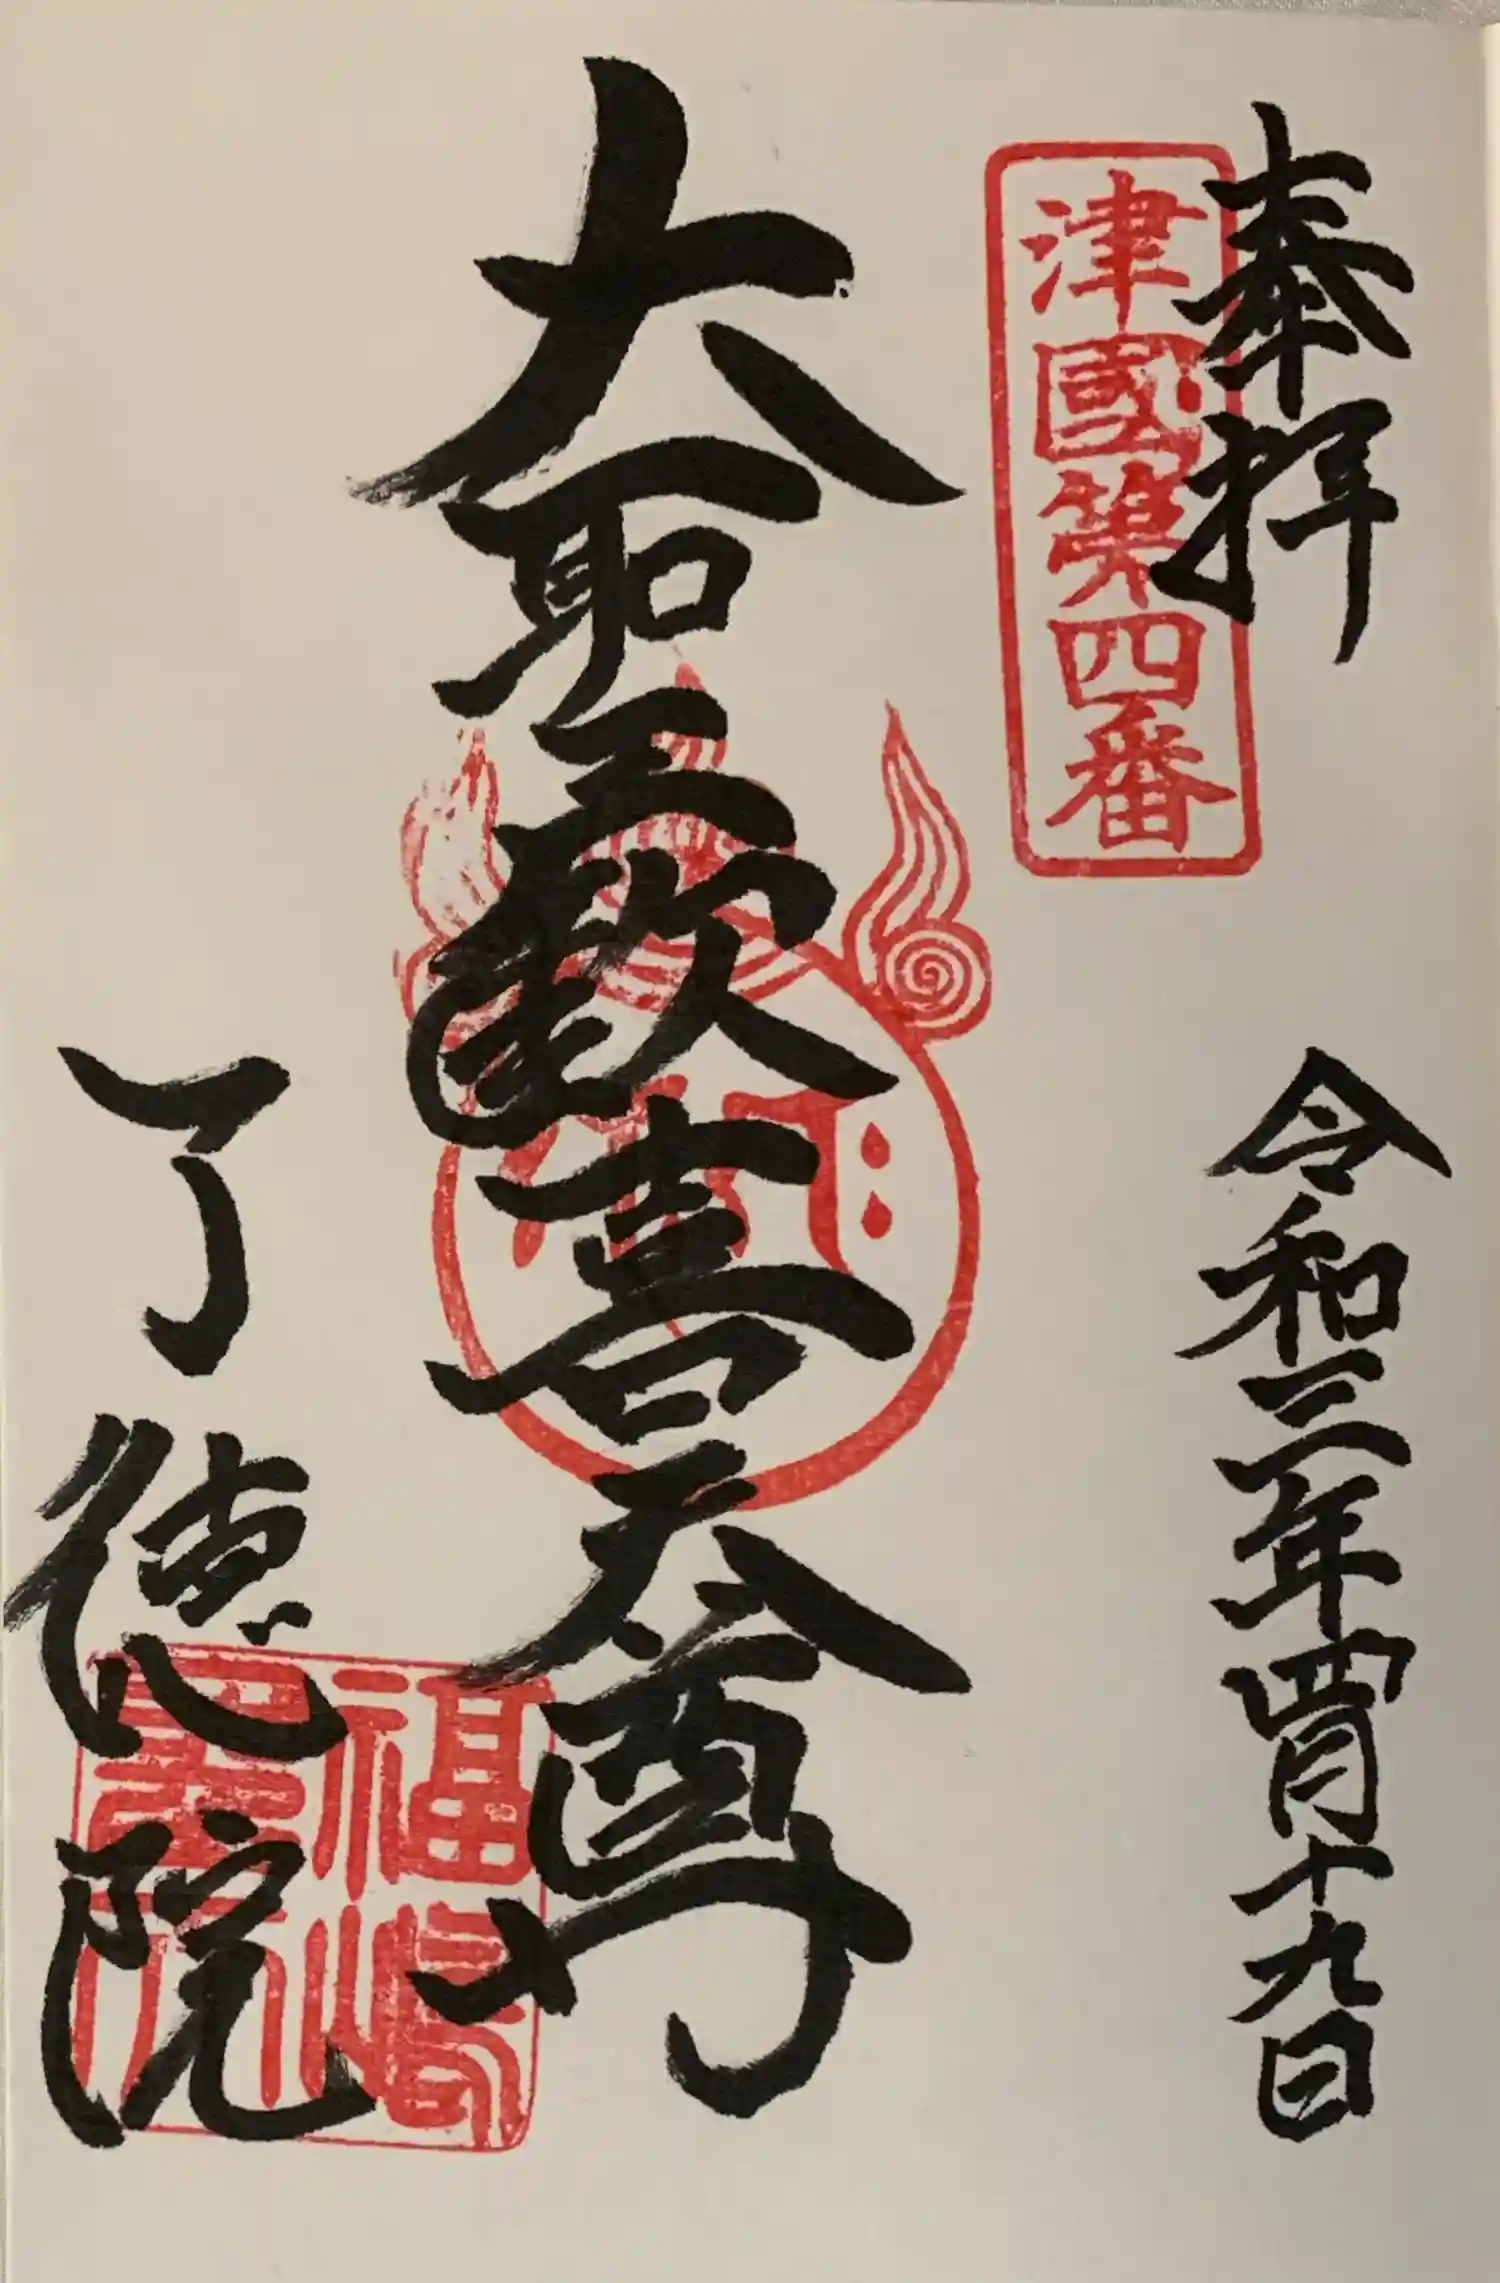 奉拝
令和三年四月十九日
津國第四番
大聖歓喜天尊
了徳院
福嶋
聖天